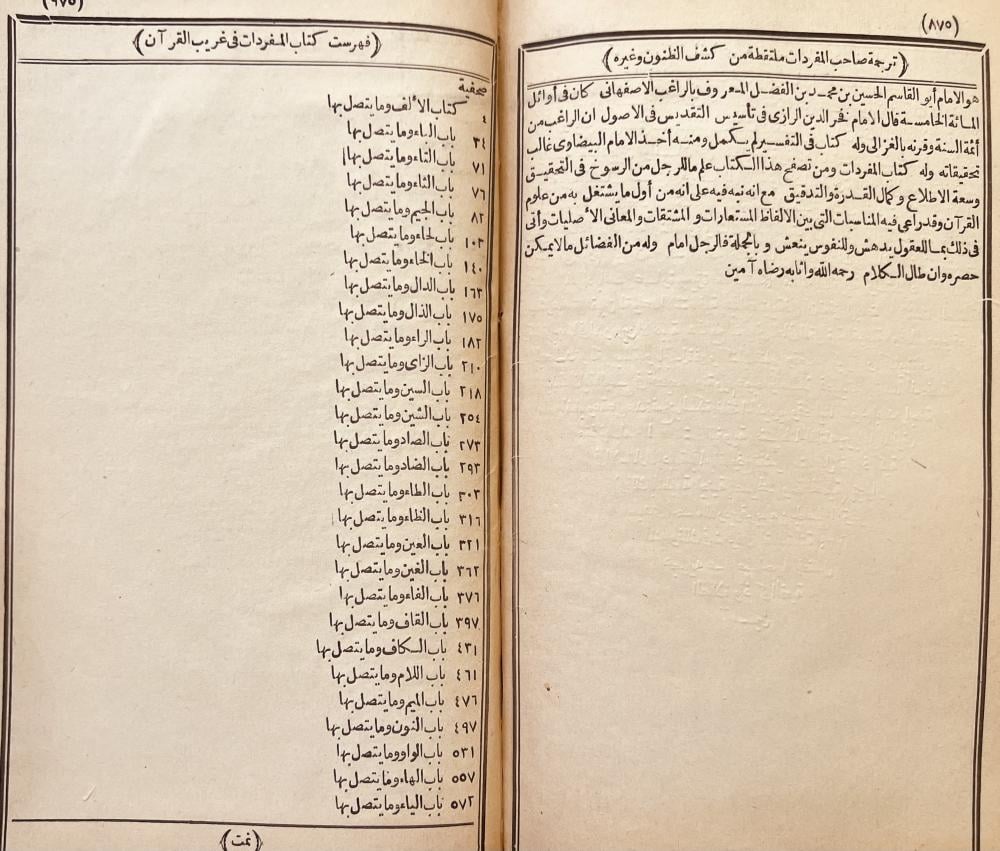 (٨٧٥)
(ترجمة صاحب المفردات ملتقطة من كشف الظنون وغيره)
هو الامام أبو القاسم الحسين بن محمد بن الفضل المعروف بالراغب الاصفهانى كان فى أوائل
المائة الخامسة قال الامام فخر الدين الرازى فى تأسيس التقديس فى الاصول ان الراغب من
أئمة السنة وقرنه بالغزالى وله كتاب فى التفسير لم يكمل ومنه أخذ الامام البيضاوى غالب
تحقيقاته وله كتاب المفردات ومن تصفح هذا الكتاب علم ما للرجل من الرسوخ فى التحقيق
وسعة الاطلاع وكمال القدرة والتدقيق مع انه نبه فيه على انه من أول ما يشتغل به من علوم
القرآن وقد راعى فيه المناسبات التى بين الالفاظ المستعارات والمشتقات والمعانى الأصليات وأتى
فى ذلك بما للعقول يدهش وللنفوس ينعش وبالجملة فالرجل امام وله من الفضائل مالايمكن
حصره وان طال الكلام رحمه الله واثابه رضاه آمين
(٩٧٥)
(فهرست كتاب المفردات فى غريب القرآن)
صحيفة
٤ كتاب الألف وما يتصل بها
٣٤ باب الباء وما يتصل بها
٧١ باب التاء وما يتصل بها
٧٦ باب الثاء وما يتصل بها
٨٢ باب الجيم وما يتصل بها
١٠٣ باب الحاء وما يتصل بها
١٤٠ باب الخاء وما يتصل بها
١٦٣ باب الدال وما يتصل بها
١٧٥ باب الذال وما يتصل بها
١٨٢ باب الراء وما يتصل بها
٢١٠ باب الزاى وما يتصل بها
٢١٨ باب السين وما يتصل بها
٢٥٤ باب الشين وما يتصل بها
٢٧٣ باب الصاد وما يتصل بها
٢٩٣ باب الضاد وما يتصل بها
٣٠٣ باب الطاء وما يتصل بها
٣١٦ باب الظاء وما يتصل بها
٣٢١ باب العين وما يتصل بها
٣٦٢ باب الغين وما يتصل بها
٣٧٦ باب الفاء وما يتصل بها
٣٩٧ باب القاف وما يتصل بها
٤٣١ باب الكاف وما يتصل بها
٤٦١ باب اللام وما يتصل بها
٤٧٦ باب الميم وما يتصل بها
٤٩٧ باب النون وما يتصل بها
٥٣١ باب الواو وما يتصل بها
٥٥٧ باب الهاء وما يتصل بها
٥٧٢ باب الياء وما يتصل بها
(تمت)